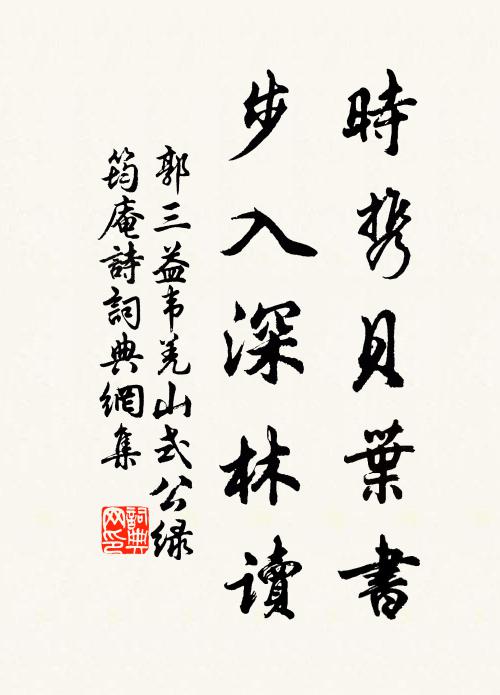 時攜貝葉書
步入深林讀
郭三益韦羌山弍公緑
筠庵詩詞典網集
詞典
网印